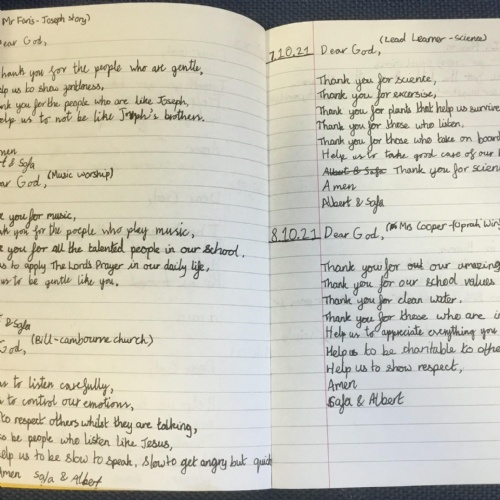 Mr Faris - Joseph story)
Dear God,
Thank you for the people who are gentle,
help us to show gentleness,
ank you for the people who are like Joseph,
Help us to not be like Joseph's brothers.
Amen
t & Safa
ar God, (Music worship)
you for music,
nk you for the people who play music,
you for all the talented people in our school,
us to apply The Lord's Prayer in our daily life,
us to be gentle like you.
& Safa
God, (Bill - cambourne church)
us to listen carefully,
to control our emotions,
to respect others whilst they are talking,
to be people who listen like Jesus,
elp us to be slow to speak, slow to get angry but quick
Amen Safa & Albert
7.10.21 Dear God, (Lead Learner - science)
Thank you for science,
Thank you for excersise,
Thank you for plants that help us survive
Thank you for those who listen,
Thank you for those who take on board
Help us to take good care of our
Albert & Safa Thank you for scien
Amen
Albert & Safa
8.10.21 Dear God, (Mrs Cooper - Oprah Winf
Thank you for out our amazing
Thank you for our school values
Thank you for clean water,
Thank you for those who are in
Help us to appreciate everything you
Help us to be charitable to othe
Help us to show respect,
Amen
Safa & Albert